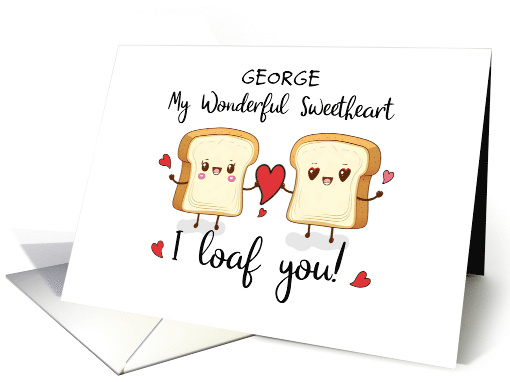 GEORGE
My Wonderful Sweetheart
I loaf you!